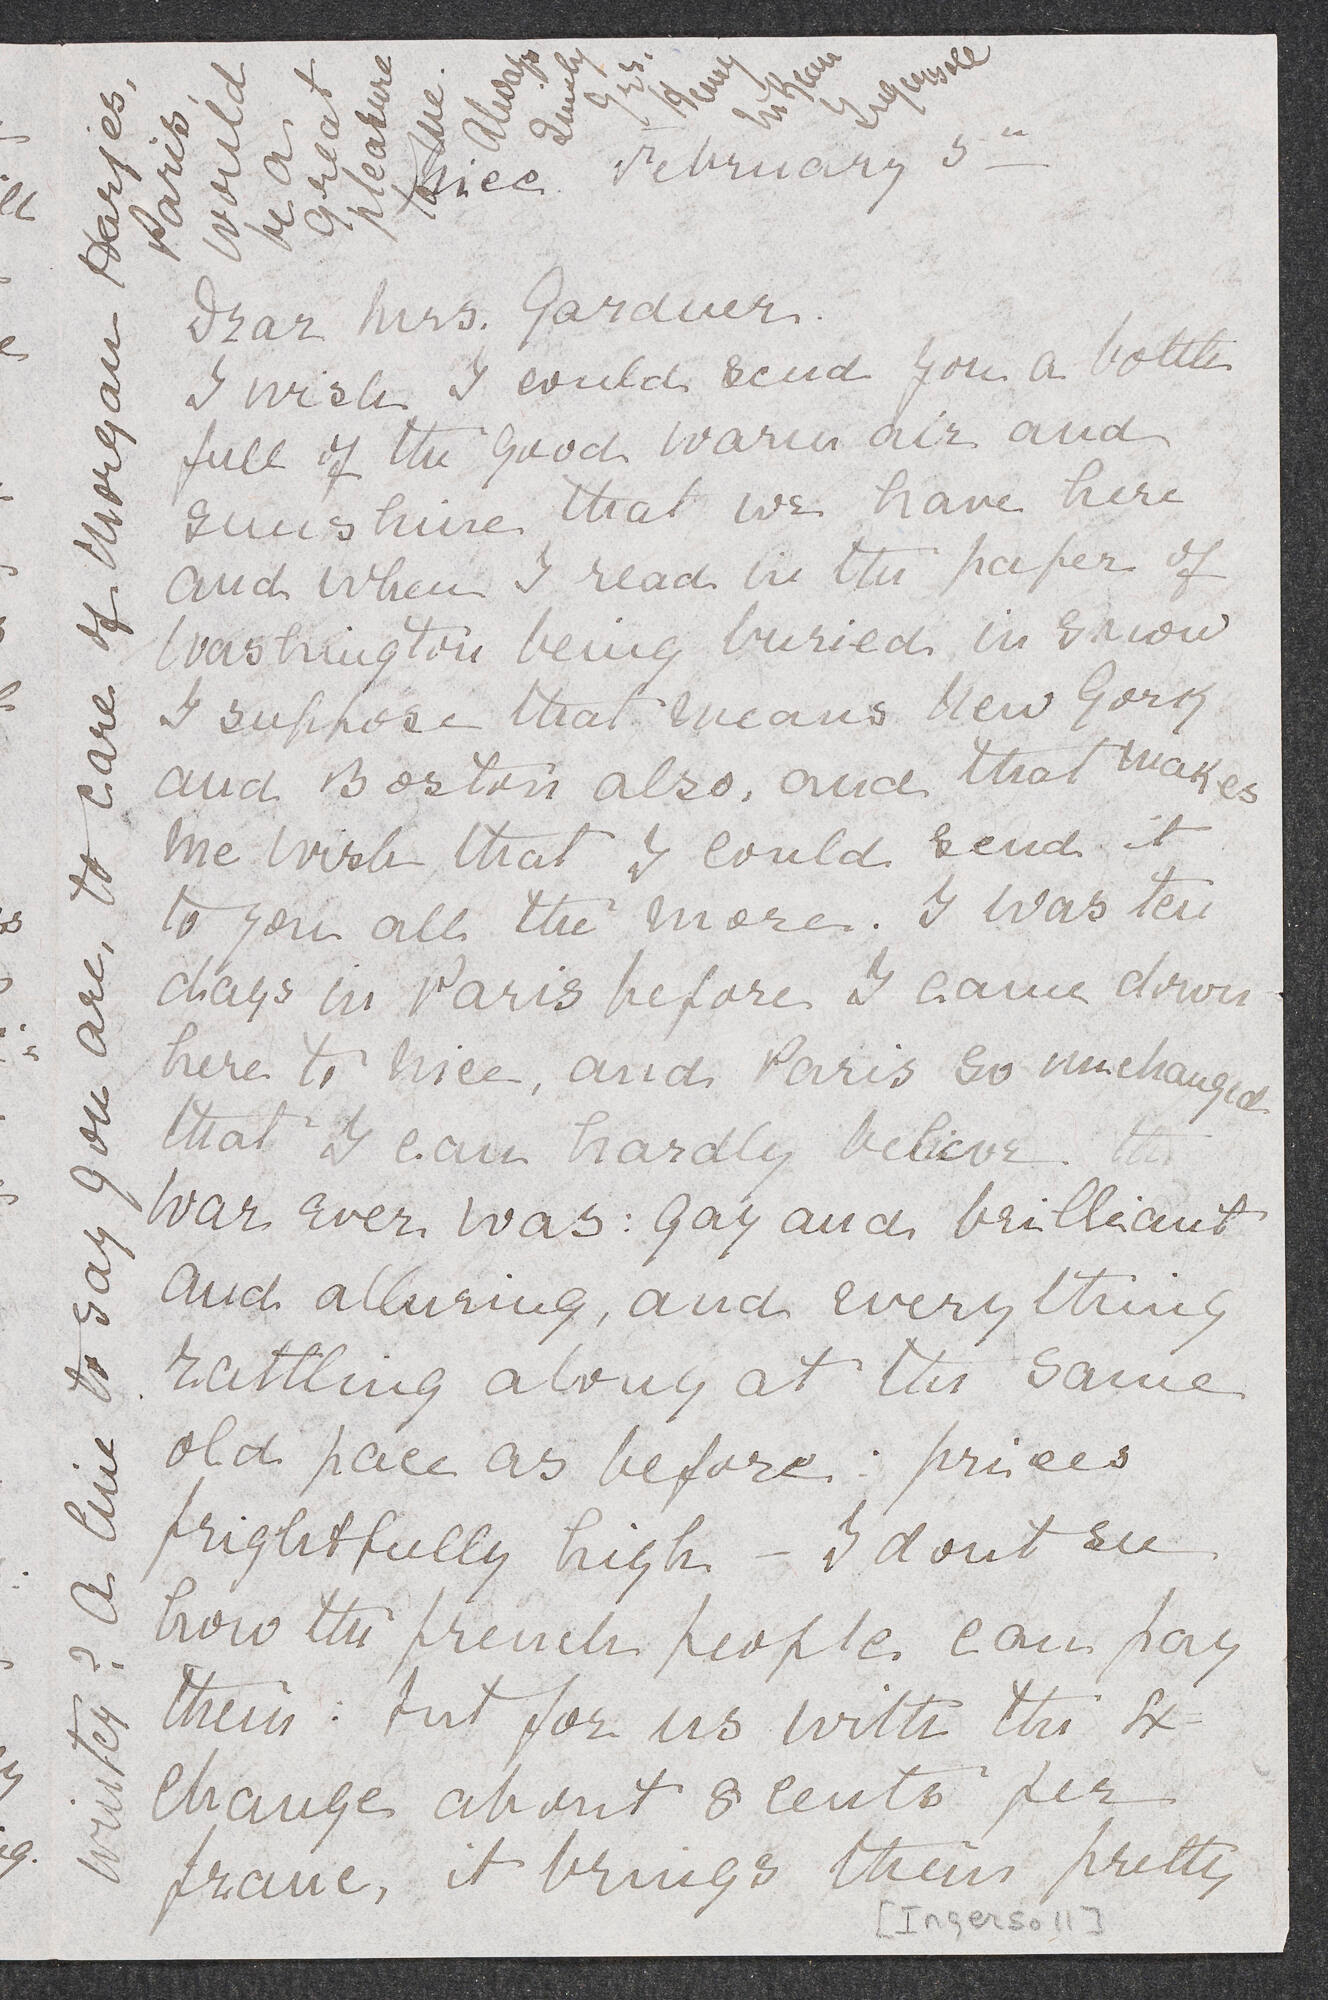 Nice February 5"
Dear Mrs. Gardner.
I wish I could send you a bottle
full of the good warm air and
sunshine that we have here
and when I read in the paper of
Washington being buried in snow
I suppose that means New York
and Boston also, and that makes
me wish that I could send it
to you all the more. I was ten
days in Paris before I came down
here to Nice, and Paris so unchanged
that I can hardly believe the
war ever was: gay and brilliant
and alluring, and everything
rattling along at the same
old pace as before: prices
frightfully high – I dont see
how the french people can pay
them: but for us with the Ex=
change about 8 cents per
franc, it brings them pretty
winter? A line to say you are, to care of Morgan Harjes,
Paris,
would
be a
great
pleasure
to me.
Always
yrs.
Henry
McKean
Ingersoll
[Ingersoll]